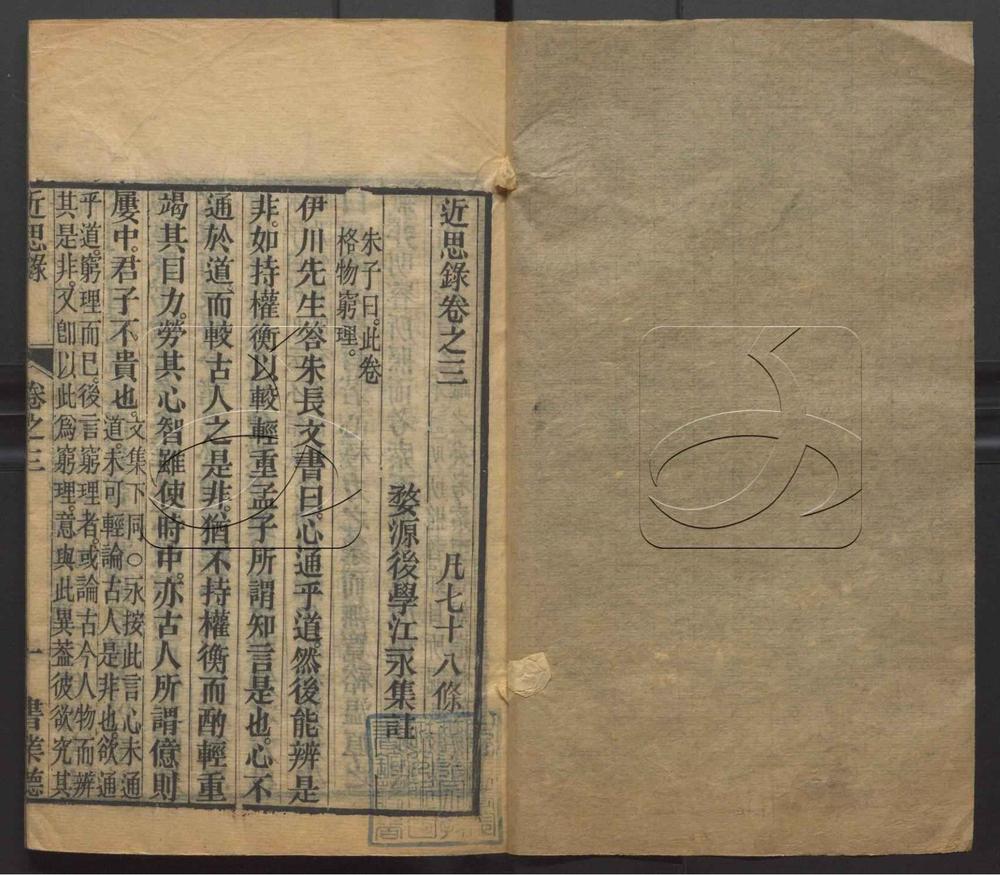 近思錄卷之三
凡七十八條
婺源後學江永集註
朱子曰此卷
格物窮理。
伊川先生答朱長文書曰。心通乎道。然後能辨是
非。如持權衡以較輕重。孟子所謂知言是也。心不
通於道。而較古人之是非。猶不持權衡而酌輕重
竭其目力。勞其心智。雖使時中。亦古人所謂億則
屢中。君子不貴也。
文集下同○永按此言心未通
道。未可輕論古人是非也。欲通
乎道。窮理而已。後言窮理者。或論古今人物而辨
其是非。又卽以此爲窮理。意與此異。蓋彼欲究其
近思錄
卷之三
一
書業德